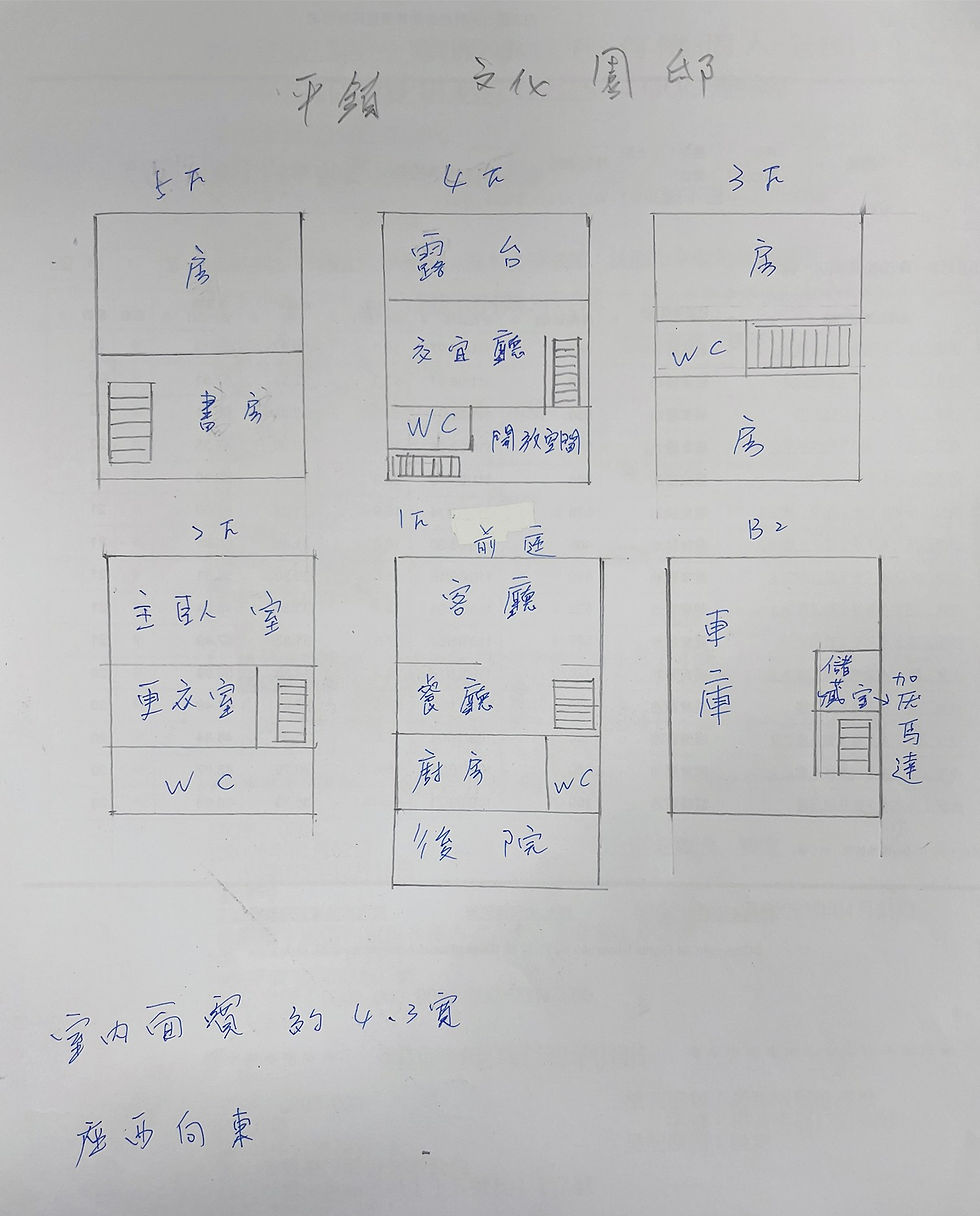 平鎮 文化園邸
5F 4F 3F
房
書房
露台
交宜廳
WC
開放空間
房
WC
房
2F 1F B2
前庭
主臥室
更衣室
WC
客廳
餐廳
廚房 WC
後院
車庫
儲藏室
加厌馬達
室內面寬 約 4.3寬
座西向東